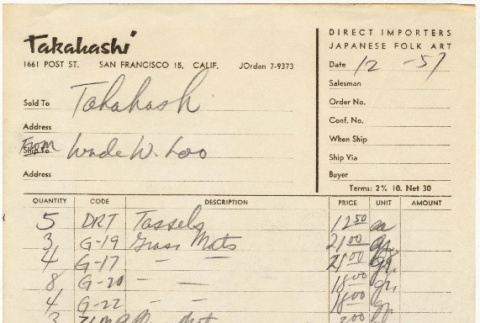 Takahashi
DIRECT IMPORTERS
JAPANESE FOLK ART
1661 POST ST. SAN FRANCISCO 15, CALIF. JOrdan 7-9373
Date 12 -57
Salesman
Sold To Takahash
Order No.
Address
Conf. No.
From
Ship To Wade W. Loo
When Ship
Ship Via
Address
Buyer
Terms: 2% 10, Net 30
QUANTITY CODE DESCRIPTION PRICE UNIT AMOUNT
5 DRT Tassels 12 50 ea
3 G-19 Grass Mats 21 00 gr.
4 G-17 — — 21 00 gr.
8 G-20 — — 18 00 gr.
4 G-22 — — 18 00 gr
3